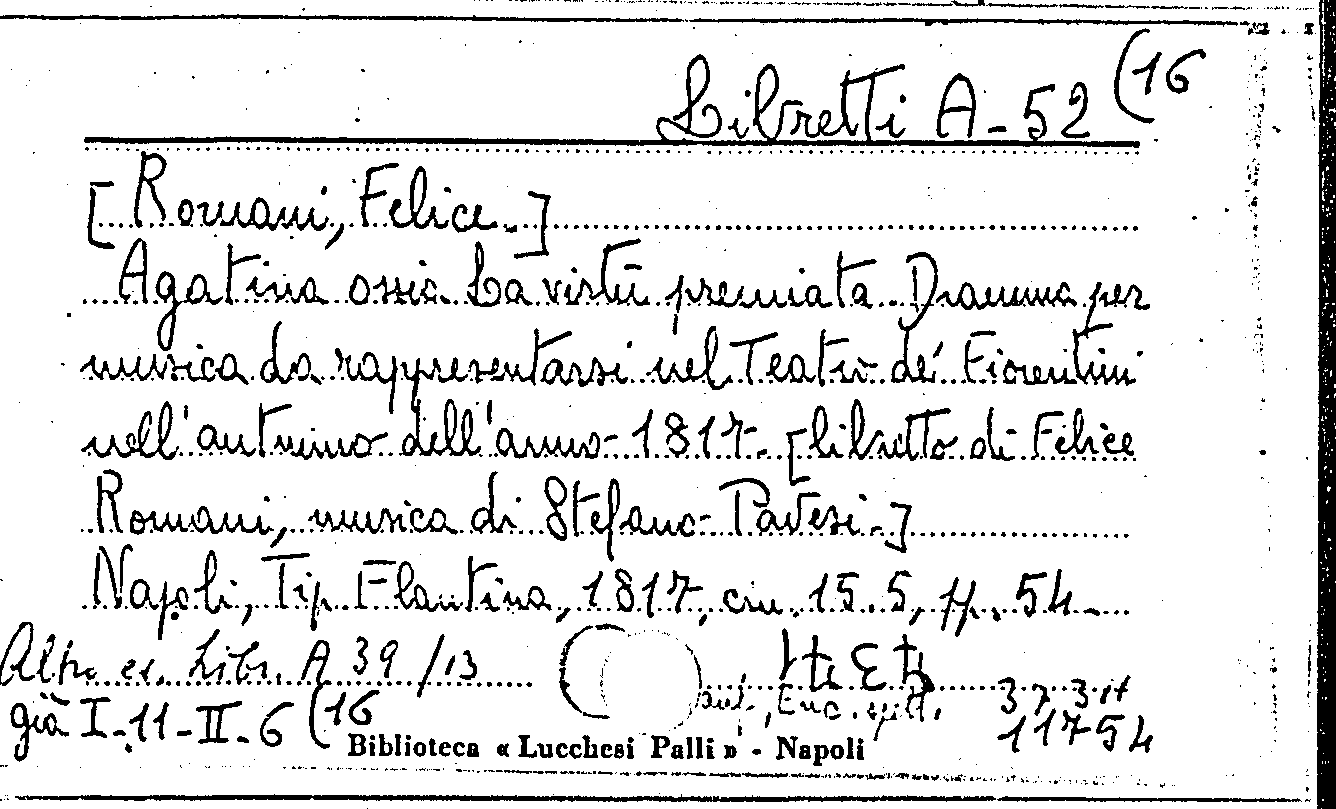 Libretti A-52 (16
[Romani, Felice.]
Agatina ossia La virtù premiata. Dramma per
musica da rappresentarsi nel Teatro de' Fiorentini
nell'autunno dell'anno 1817. [libretto di Felice
Romani, musica di Stefano Pavesi.]
Napoli, Tip. Flautina, 1817, cm. 15.5, pp. 54.
Altro es. Libr. A 39/13
già I-11-II-6 (16
11754
Biblioteca « Lucchesi Palli » - Napoli